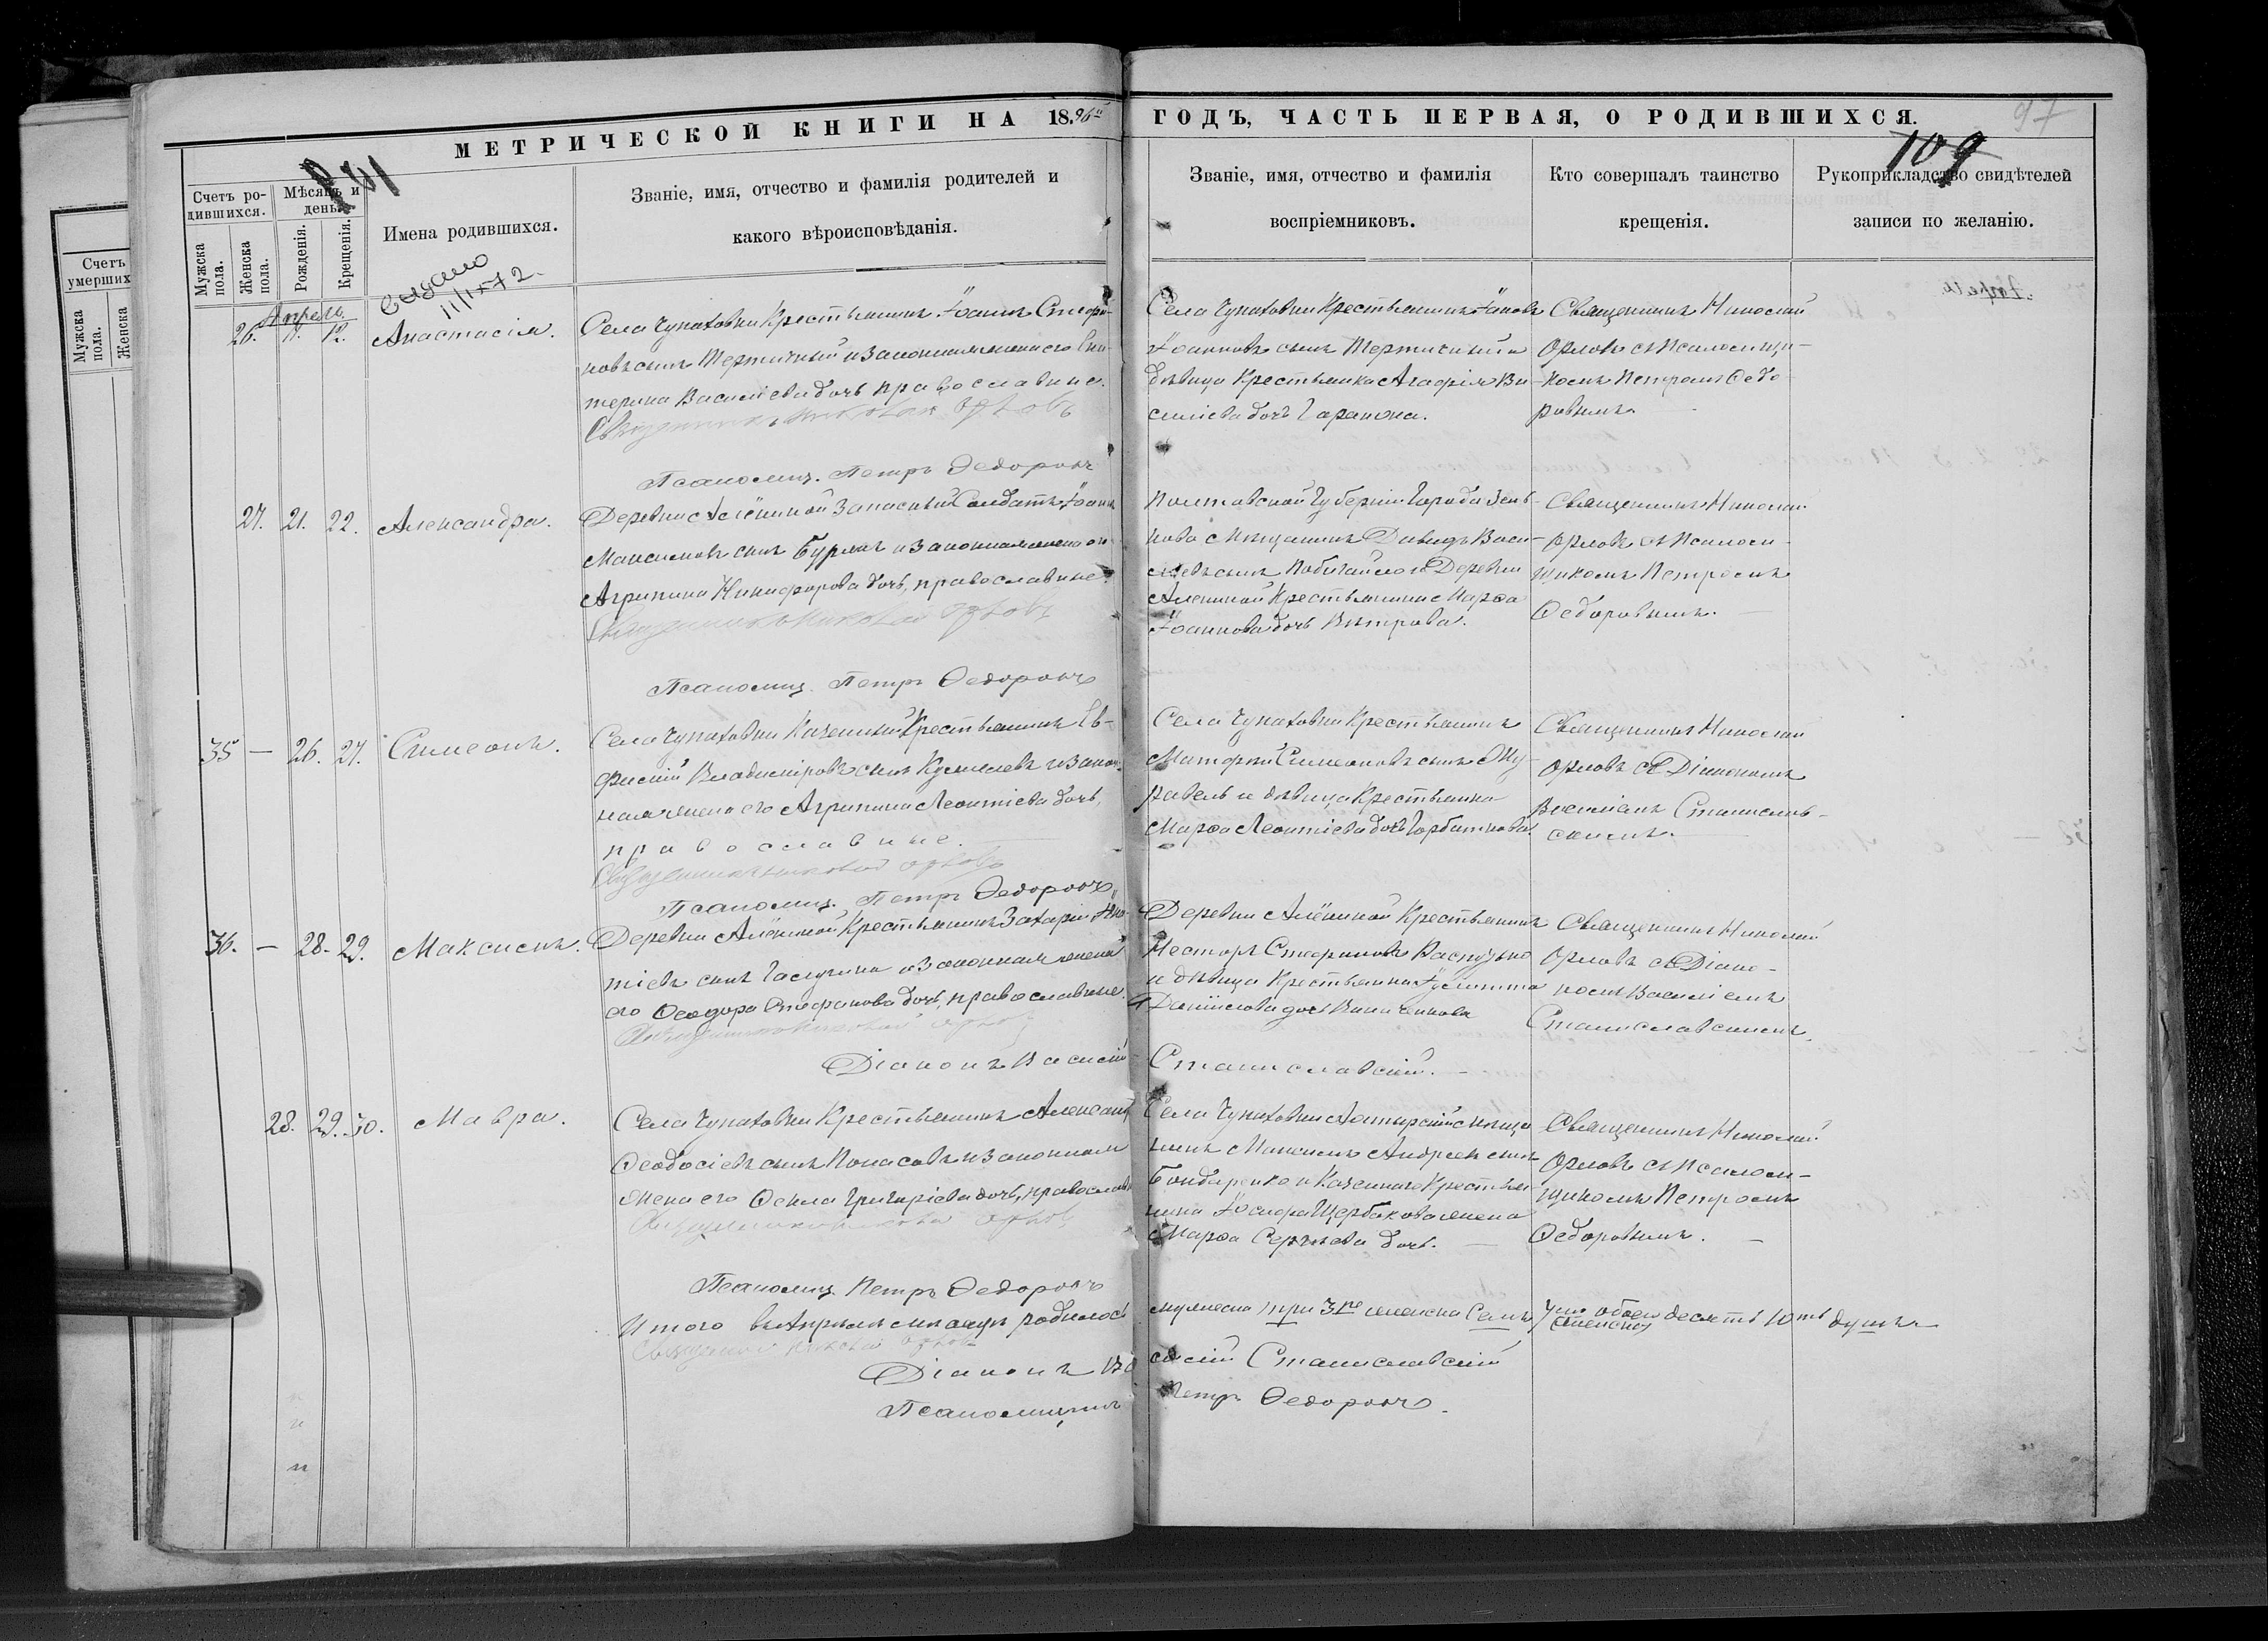 МЕТРИЧЕСКОЙ КНИГИ НА 1896й
ГОДЪ, ЧАСТЬ ПЕРВАЯ, О РОДИВШИХСЯ.
97
109
Счетъ умерших
Мужска пола.
Женска
Счетъ родившихся.
Мужска пола.
Женска пола.
Мѣсяцъ и день.
Рожденія.
Крещенія.
Имена родившихся.
Званіе, имя, отчество и фамилія родителей и
какого вѣроисповѣданія.
Званіе, имя, отчество и фамилія
воспріемниковъ.
Кто совершалъ таинство
крещенія.
Рукоприкладство свидѣтелей
записи по желанію.
Апрель
26. 11. 12. Анастасія.
Села Чупаховки Крестьянинъ Іоаннъ Стефа-
новъ сынъ Тертичный и законная жена его Ека-
терина Василіева дочь православные.
Священникъ Николай Орловъ
Псаломщ. Петръ Ѳедоровъ
Села Чупаховки Крестьянинъ Іаковъ
Іоанновъ сынъ Тертичный и
дѣвица Крестьянка Агафія Ва-
силіева дочь
Священникъ Николай
Орловъ съ Псаломщи-
комъ Петромъ Ѳедо-
ровымъ.
27. 21. 22. Александра.
Деревни Алёниной Запасный Солдатъ Іоаннъ
Максимовъ сынъ Бурлак и законная жена его
Агрипина Никифорова дочь, православные.
Священникъ Николай Орловъ
Псаломщ. Петръ Ѳедоровъ
Полтавской Губерніи Города Зень-
кова Мещанинъ Давидъ Васи-
ліевъ сынъ и Деревни
Алениной Крестьянина Марѳа
Іоаннова дочь Вѣтрова.
Священникъ Николай
Орловъ съ Псалом-
щикомъ Петромъ
Ѳедоровымъ.
35 — 26. 27. Симеонъ.
Села Чупаховки Казенный Крестьянинъ Ев-
фимій Владиміровъ сынъ и закон-
ная жена его Агрипина Леонтіева дочь,
православные.
Священникъ Николай Орловъ
Псаломщ. Петръ Ѳедоровъ
Села Чупаховки Крестьянинъ
Матфей Симеоновъ сынъ Жу-
равель и дѣвица Крестьянка
Марѳа Леонтіева дочь
Священникъ Николай
Орловъ съ Діакономъ
Василіемъ Станислав-
скимъ.
36. — 28. 29. Максимъ.
Деревни Алёниной Крестьянинъ Захарій Игна-
тіевъ сынъ и законная жена
его Ѳеодора Стефанова дочь, православные.
Священникъ Николай Орловъ
Діаконъ Василій Станиславскій.
Деревни Алёниной Крестьянинъ
Несторъ Стефановъ
и дѣвица Крестьянка Іулитта
Даніилова дочь
Священникъ Николай
Орловъ съ Діако-
номъ Василіемъ
Станиславскимъ.
28. 29. 30. Мавра.
Села Чупаховки Крестьянинъ Алексій
Ѳеодосіевъ сынъ и законная
жена его Ѳекла Григоріева дочь, православные
Священникъ Николай Орловъ
Псаломщ. Петръ Ѳедоровъ
Села Чупаховки Ахтырскій мѣща-
нинъ Максимъ Андреевъ сынъ
Бондаренко и Казеннаго Крестья-
нина Іосифа Щербакова жена
Марѳа Сергѣева дочь.
Священникъ Николай
Орловъ съ Псалом-
щикомъ Петромъ
Ѳедоровымъ.
Итого въ Апрѣлѣ мѣсяцѣ родилось мужеска три 3ре женска Семь 7мь обоего десять 10ть душъ
Священникъ Николай Орловъ
Діаконъ Василій Станиславскій
Псаломщикъ Петръ Ѳедоровъ.